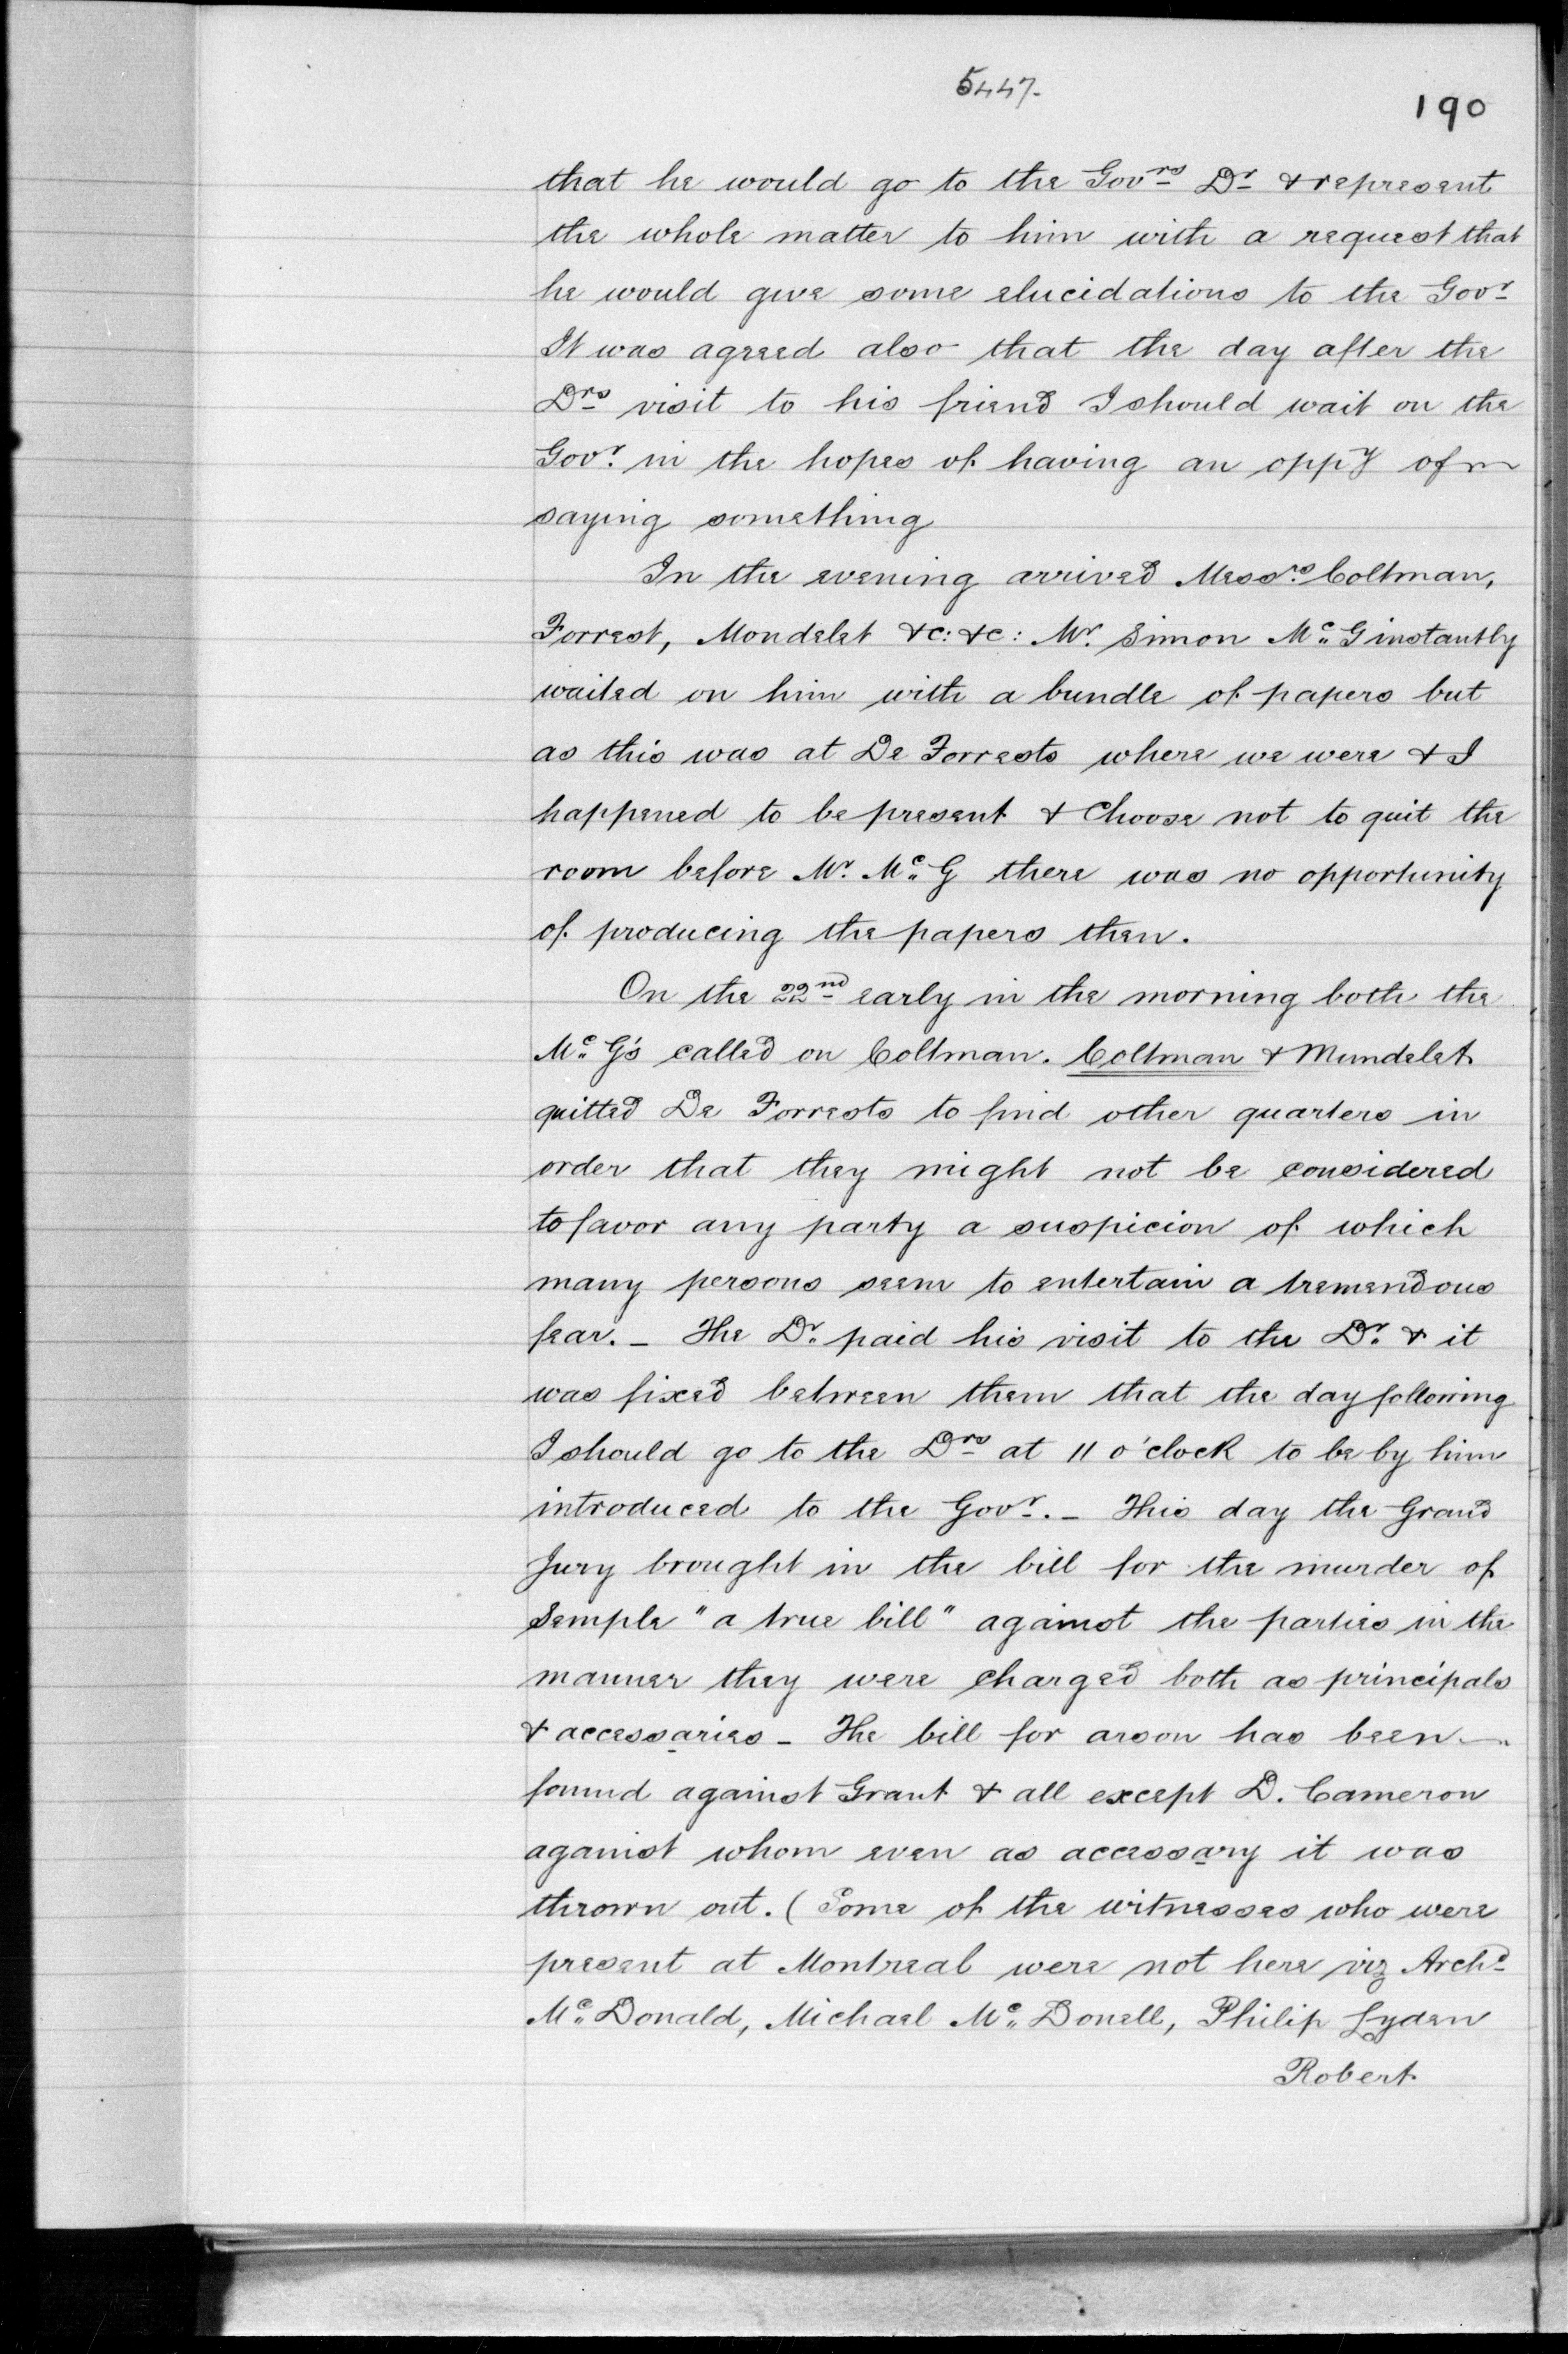 5447.
190
that he would go to the Govrs Dr & represent
the whole matter to him with a request that
he would give some elucidations to the Govr
It was agreed also that the day after the
Drs visit to his friend I should wait on the
Govr. in the hopes of having an oppy of
saying something
In the evening arrived Messrs Coltman,
Forrest, Mondelet &c: &c: Mr. Simon Mc G instantly
waited on him with a bundle of papers but
as this was at De Forrests where we were & I
happened to be present & Choose not to quit the
room before Mr. Mc G there was no opportunity
of producing the papers then.
On the 22nd early in the morning both the
Mc G's called on Coltman. Coltman & Mundelet
quitted De Forrests to find other quarters in
order that they might not be considered
to favor any party a suspicion of which
many persons seem to entertain a tremendous
fear. _ The Dr. paid his visit to the Dr. & it
was fixed between them that the day following
I should go to the Drs at 11 o'clock to be by him
introduced to the Govr. _ This day the Grand
Jury brought in the bill for the murder of
Semple "a true bill" against the parties in the
manner they were charged both as principals
& accessaries _ The bill for arson has been
found against Grant & all except D. Cameron
against whom even as accessary it was
thrown out. (Some of the witnesses who were
present at Montreal were not here viz Archd
Mc Donald, Michael Mc Donell, Philip Lyden
Robert